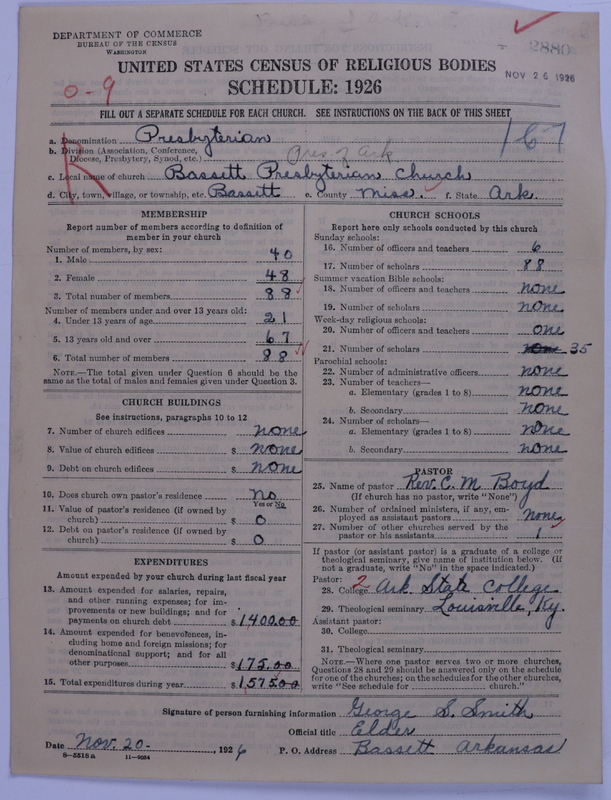 DEPARTMENT OF COMMERCE
BUREAU OF THE CENSUS
WASHINGTON
2880
UNITED STATES CENSUS OF RELIGIOUS BODIES
NOV 26 1926
SCHEDULE: 1926
0-9
FILL OUT A SEPARATE SCHEDULE FOR EACH CHURCH. SEE INSTRUCTIONS ON THE BACK OF THIS SHEET
167
a. Denomination Presbyterian
b. Division (Association, Conference, Diocese, Presbytery, Synod, etc.) Pres of Ark
c. Local name of church Bassitt Presbyterian Church
d. City, town, village, or township, etc. Bassitt e. County Miss. f. State Ark.
MEMBERSHIP
Report number of members according to definition of
member in your church
Number of members, by sex:
1. Male 40
2. Female 48
3. Total number of members 88
Number of members under and over 13 years old:
4. Under 13 years of age 21
5. 13 years old and over 67
6. Total number of members 88
NOTE.—The total given under Question 6 should be the
same as the total of males and females given under Question 3.
CHURCH BUILDINGS
See instructions, paragraphs 10 to 12
7. Number of church edifices none
8. Value of church edifices $ none
9. Debt on church edifices $ none
10. Does church own pastor's residence No
Yes or No
11. Value of pastor's residence (if owned by
church) $ 0
12. Debt on pastor's residence (if owned by
church) $ 0
EXPENDITURES
Amount expended by your church during last fiscal year
13. Amount expended for salaries, repairs,
and other running expenses; for im-
provements or new buildings; and for
payments on church debt $ 1400.00
14. Amount expended for benevolences, in-
cluding home and foreign missions; for
denominational support; and for all
other purposes $ 175.00
15. Total expenditures during year $ 1,575.00
CHURCH SCHOOLS
Report here only schools conducted by this church
Sunday schools:
16. Number of officers and teachers 6
17. Number of scholars 88
Summer vacation Bible schools:
18. Number of officers and teachers none
19. Number of scholars none
Week-day religious schools:
20. Number of officers and teachers one
21. Number of scholars none 35
Parochial schools:
22. Number of administrative officers none
23. Number of teachers—
a. Elementary (grades 1 to 8) none
b. Secondary none
24. Number of scholars—
a. Elementary (grades 1 to 8) none
b. Secondary none
PASTOR
25. Name of pastor Rev. C. M Boyd
(If church has no pastor, write "None")
26. Number of ordained ministers, if any, em-
ployed as assistant pastors none
27. Number of other churches served by the
pastor or his assistants 1
If pastor (or assistant pastor) is a graduate of a college or
theological seminary, give name of institution below. (If
not a graduate, write "No" in the space indicated.)
Pastor:
28. College 2 Ark State College
29. Theological seminary Louisville, Ky.
Assistant pastor:
30. College
31. Theological seminary
NOTE.—Where one pastor serves two or more churches,
Questions 28 and 29 should be answered only on the schedule
for one of the churches; on the schedules for the other churches,
write "See schedule for church."
Signature of person furnishing information George S. Smith
Official title Elder
Date Nov. 20- , 1926 P. O. Address Bassett Arkansas
8-5518a 11-9084